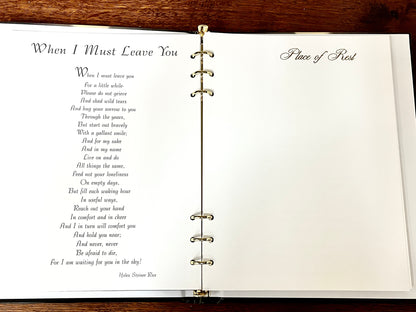 When I Must Leave You
When I must leave you
For a little while
Please do not grieve
And shed wild tears
And hug your sorrow to you
Through the years,
But start out bravely
With a gallant smile;
And for my sake
And in my name
Live on and do
All things the same,
Feed not your loneliness
On empty days,
But fill each waking hour
In useful ways,
Reach out your hand
In comfort and in cheer
And I in turn will comfort you
And hold you near;
And never, never
Be afraid to die,
For I am waiting for you in the sky!
Helen Steiner Rice
Place of Rest